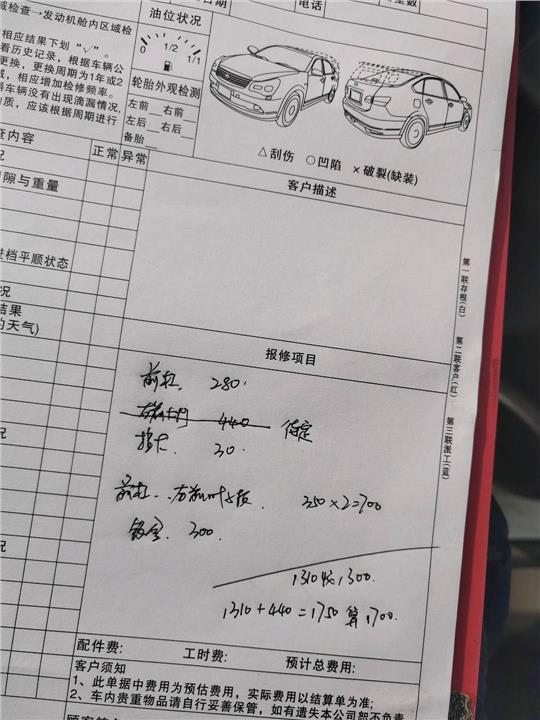 日期
电话
域检查→发动机舱内区域检
油位状况
相应结果下划"√"。
看历史记录，根据车辆公
更换，更换周期为1年或2
，相应增加检修频率。
车辆没有出现滴漏情况，
质，应该根据周期进行
0 1/2 1/1
轮胎外观检测
左前 右前
左后 右后
备胎
△刮伤 ○凹陷 ×破裂(缺装)
查内容
正常 异常
客户描述
况
隙与重量
挂档平顺状态
况
结果
的天气)
第一联存根(白)
第二联客户(红)
第三联派工(蓝)
报修项目
前杠. 280.
440 待定
30.
前杠. 右前叶子板 350×2=700
钣金. 300.
1310 1300.
1310+440=1750 算1700.
况
配件费: 工时费: 预计总费用:
客户须知
1、此单据中费用为预估费用，实际费用以结算单为准;
2、车内贵重物品请自行妥善保管，如有遗失本公司恕不负责